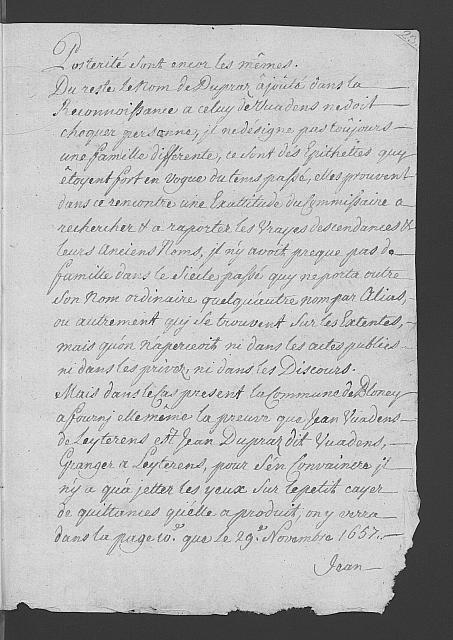 23.
Posterité sont encor les mêmes.
Du reste le Nom de Dupraz ajouté dans la
Reconnoissance a celuy de Vuadens ne doit
choquer personne, il ne désigne pas toûjours
une famille differente, ce sont des Epithettes quy
êtoyent fort en vogue du tems passé, elles prouvent
dans ce rencontre une Exattitude du Commissaire a
rechercher & a raporter les vrayes descendances &
leurs Anciens Noms, il n'y avoit preque pas de
famille dans le Siecle passé quy ne porta outre
son Nom ordinaire quelqu'autre nom par Alias,
ou autrement qui se trouvent sur les Extentes,
mais qu'on n'aperceoit ni dans les actes publics
ni dans les privez, ni dans les Discours.
Mais dans le Cas present la Commune de Bloney
a fourni elle même la preuve que Jean Vuadens
de Leyterens est Jean Dupraz dit Vuadens,
Granger a Leyterens, pour s'én Convaincre il
n'y a qu'a jetter les yeux sur le petit cayer
de quittances qu'elle a produit, on y verra
dans la page 10.e que le 29.e Novembre 1657.
Jean